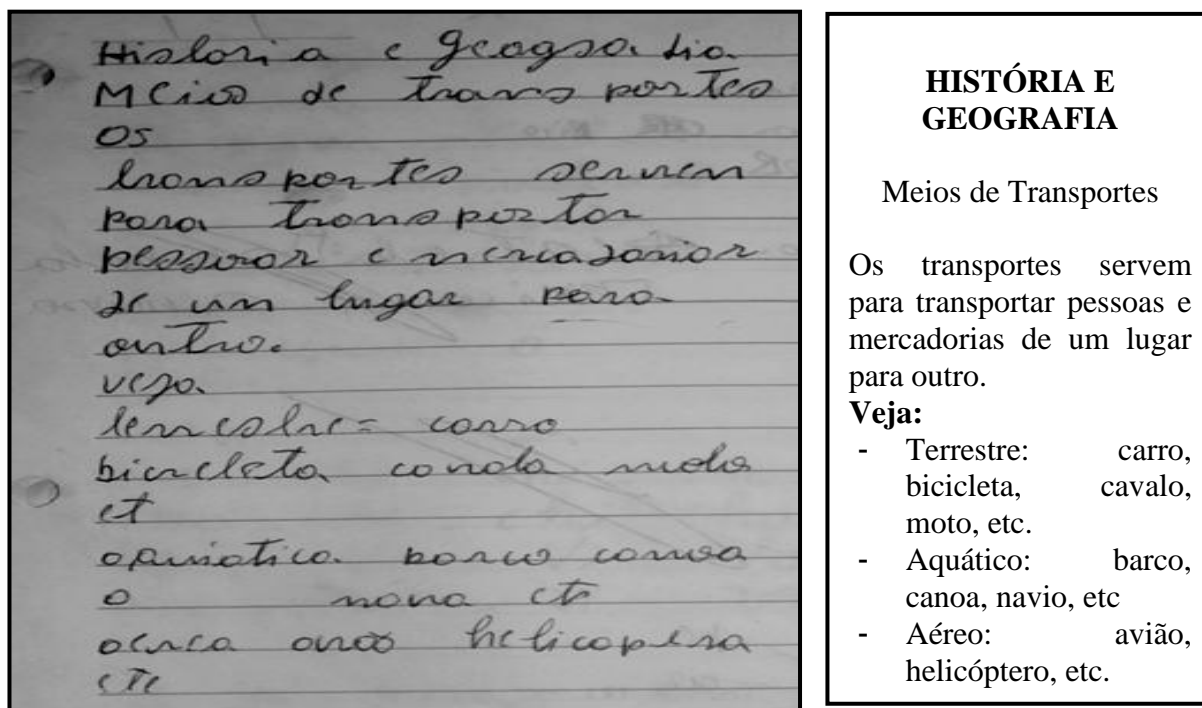 Hisloria e geogsa fia
Meios de trans portes
Os
transportes servem
para transportar
pessoar e mercadorior
de um lugar para
outro.
veja
lerreslre = carro
bicicleta
et
barco
o et
helicopera
etc
HISTÓRIA E
GEOGRAFIA
Meios de Transportes
Os transportes servem
para transportar pessoas e
mercadorias de um lugar
para outro.
Veja:
- Terrestre: carro,
bicicleta, cavalo,
moto, etc.
- Aquático: barco,
canoa, navio, etc
- Aéreo: avião,
helicóptero, etc.